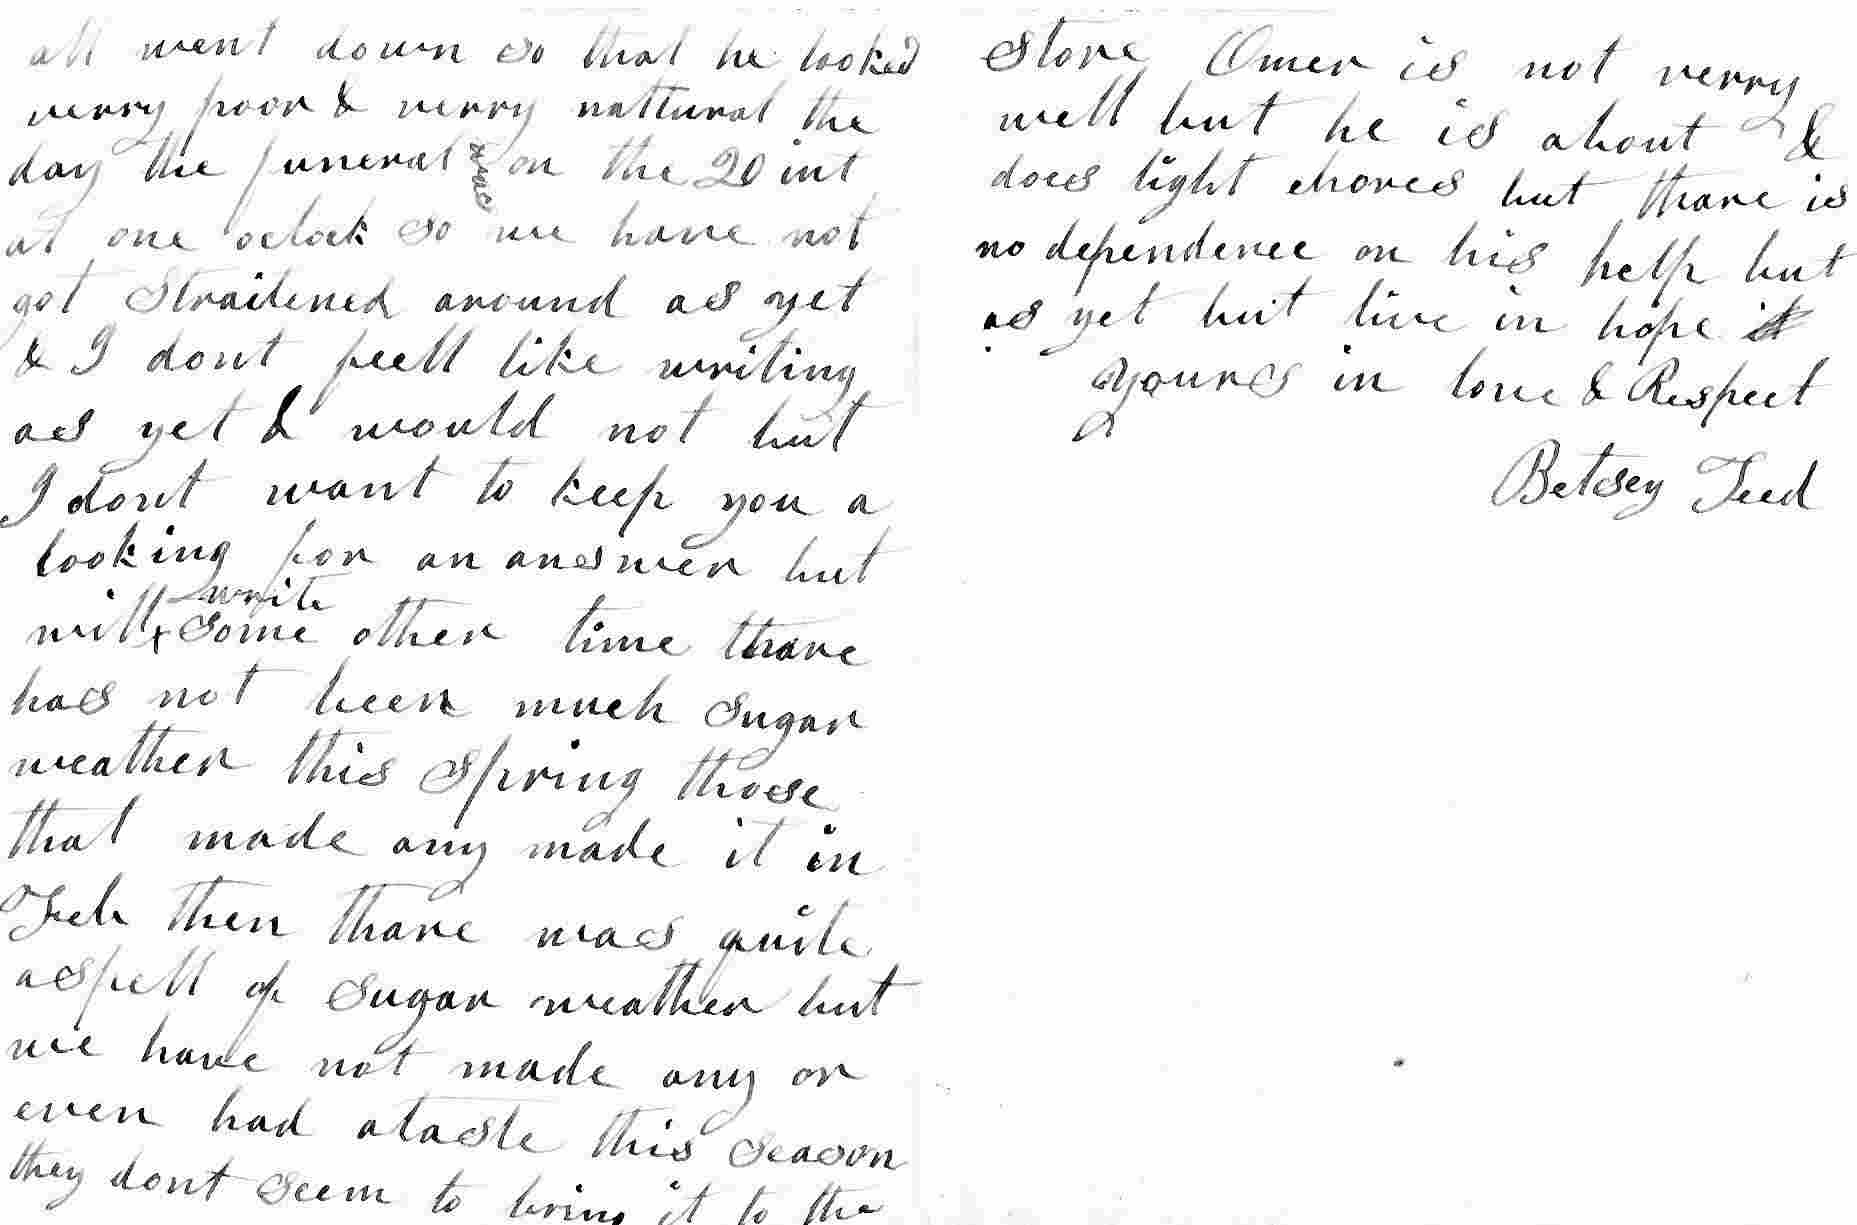 all went down so that he looked
verry poor & verry nattural the
day the funeral was on the 20 int
at one oclock so we have not
got Straitened around as yet
& I dont feell like writing
as yet & would not but
I dont want to keep you a
looking for an answer but
will write some other time thare
has not been much sugar
weather this Spring those
that made any made it in
Feb then thare was quite
a spell of sugar weather but
we have not made any or
even had a taste this season
they dont seem to bring it to the
store Omer is not verry
well but he is about &
does light chores but thare is
no dependence on his help but
as yet but live in hope
yours in love & Respect
Betsey Teed